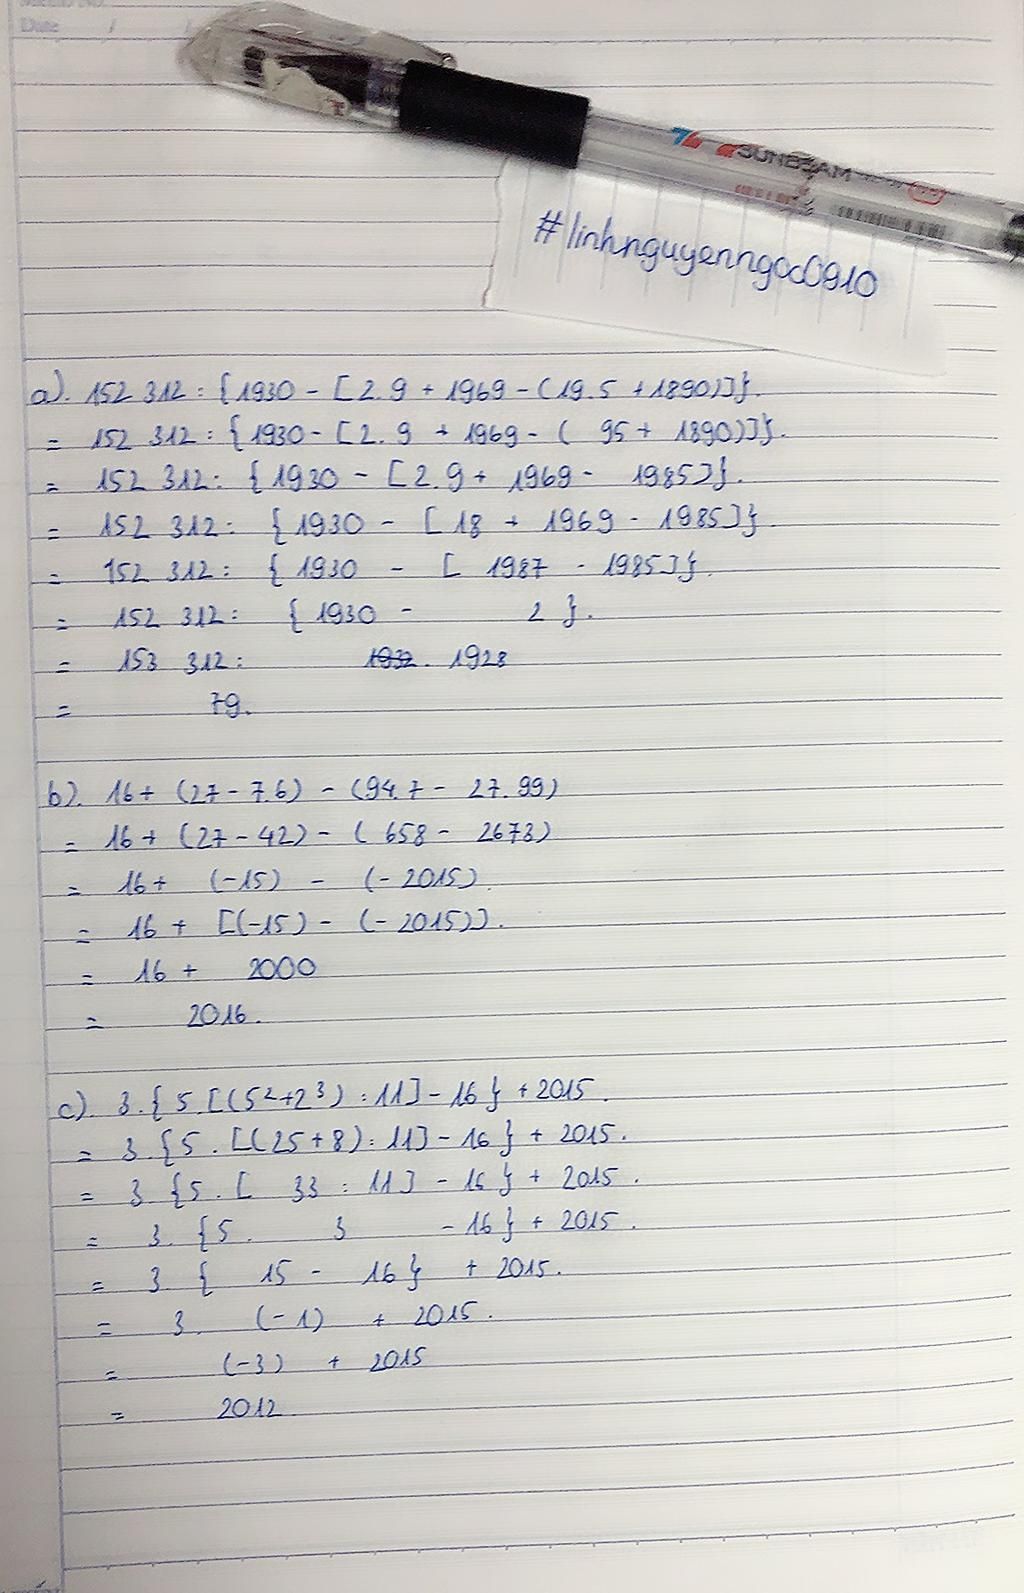 Memo No.
Date / /
SUNBEAM
#linhnguyenngoc0910
a). 152 312 : {1930 - [2.9 + 1969 - (19.5 + 1890)]}.
= 152 312 : {1930 - [2.9 + 1969 - ( 95 + 1890)]}.
= 152 312 : {1930 - [2.9 + 1969 - 1985]}.
= 152 312 : {1930 - [18 + 1969 - 1985]}.
= 152 312 : {1930 - [ 1987 - 1985]}.
= 152 312 : {1930 - 2}.
= 153 312 : 1932. 1928
= 79.
b). 16 + (27 - 7.6) - (94.7 - 27.99)
= 16 + (27 - 42) - (658 - 2673)
= 16 + (-15) - (-2015).
= 16 + [(-15) - (-2015)].
= 16 + 2000
= 2016.
c) 3.{5.[(5²+2³) : 11] - 16} + 2015.
= 3.{5.[(25+8) : 11] - 16} + 2015.
= 3 {5.[ 33 : 11] - 16} + 2015.
= 3. {5. 3 - 16} + 2015.
= 3 { 15 - 16} + 2015.
= 3. (-1) + 2015.
= (-3) + 2015
= 2012